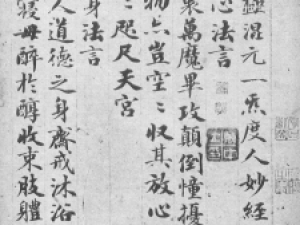 混元一炁度人妙經
心法言
萬魔畢攻顛倒憧擾
物亦豈空〻収其放心
〻咫尺天宮
身法言
人道德之身齋戒沐浴
寢毋醉於醇收束肢體